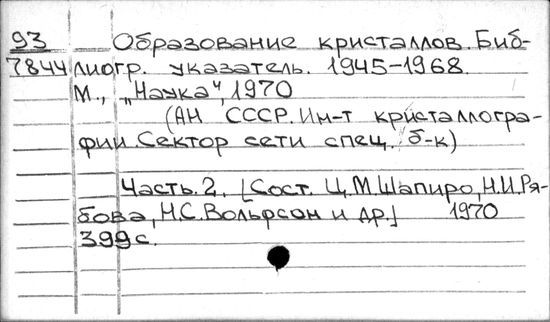 93 Образование кристаллов. Биб-
7844 лиогр. указатель. 1945-1968.
М., „Наука", 1970
(АН СССР. Ин-т кристаллогра-
фии. Сектор сети спец. б-к)
Часть. 2. [Сост. Ц.М. Шапиро, Н.И. Ря-
бова, Н.С. Вольфсон и др.] 1970
399 с.